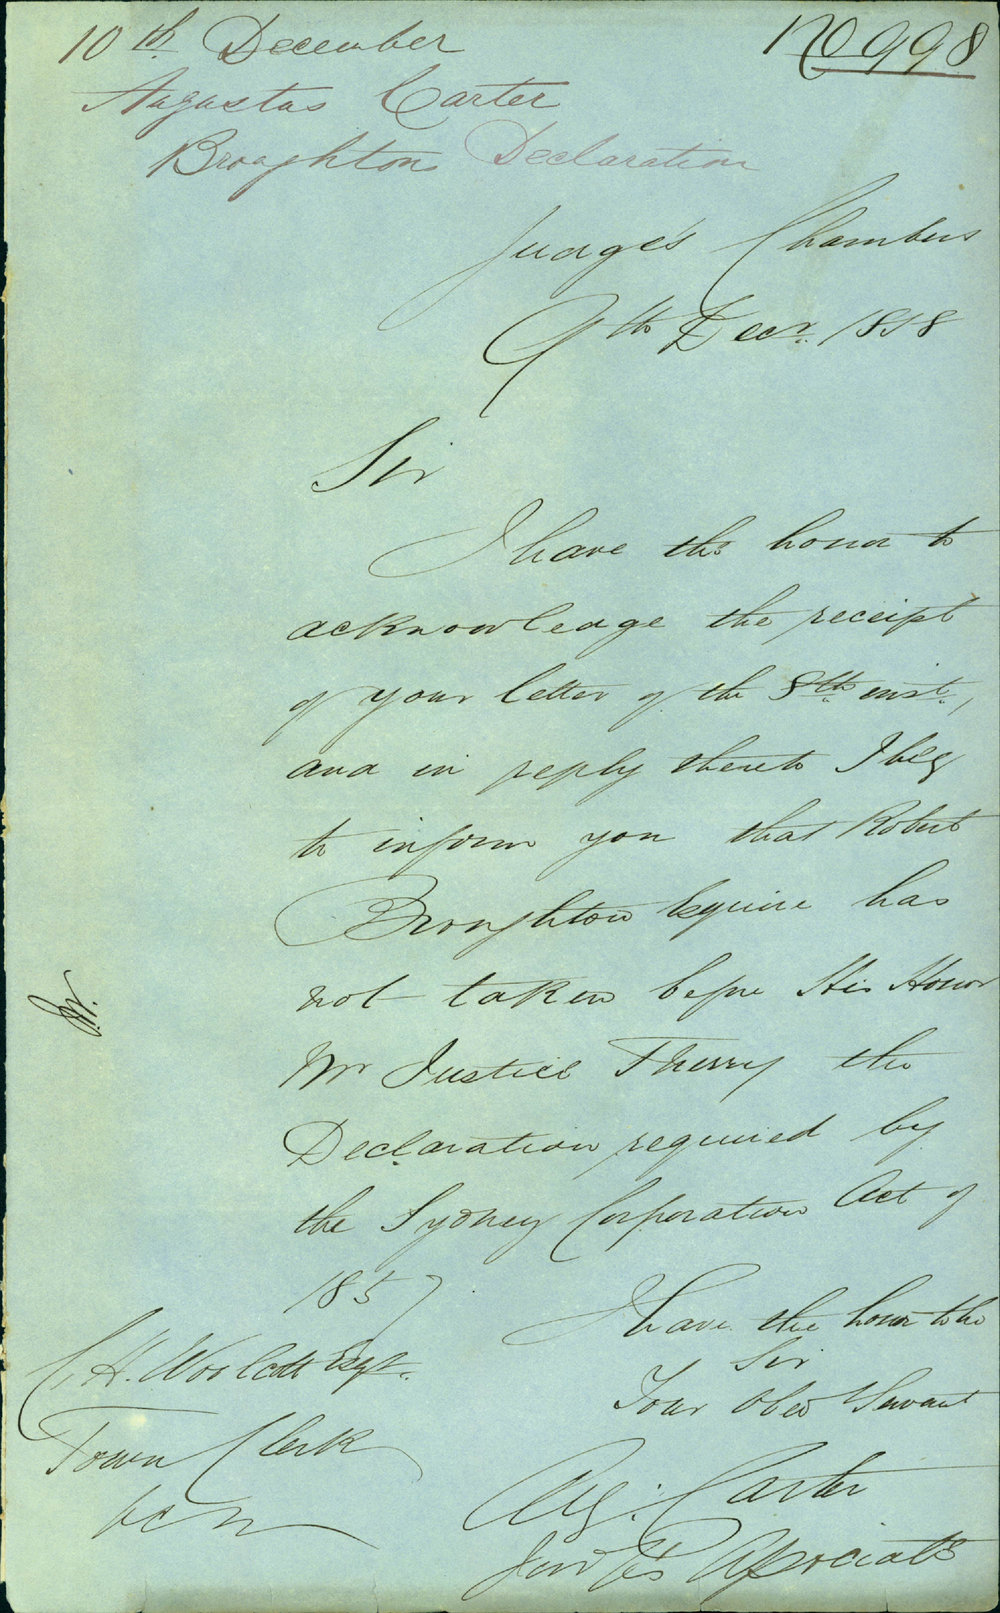 10th December
No 998
Augustus Carter
Broughtons Declaration
Judge's Chambers
9th Decr. 1858
Sir
I have the honor to
acknowledge the receipt
of your letter of the 8th inst.,
and in reply thereto I beg
to inform you that Robert
Broughton Esquire has
not taken before His Honor
Mr Justice Therry the
Declaration required by
the Sydney Corporation Act of
1857
I have the honor to be
Sir
Your Obed Servant
C. H. Woolcott Esqr.
Town Clerk
Aug. Carter
Judge's Associate